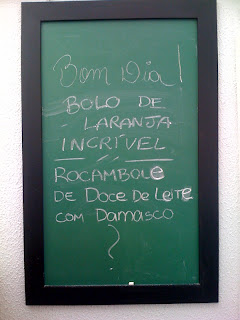 Bom Dia!
BOLO DE
LARANJA
INCRÍVEL
ROCAMBOLe
DE DOCE DE LEITE
COM DAMASCO
?